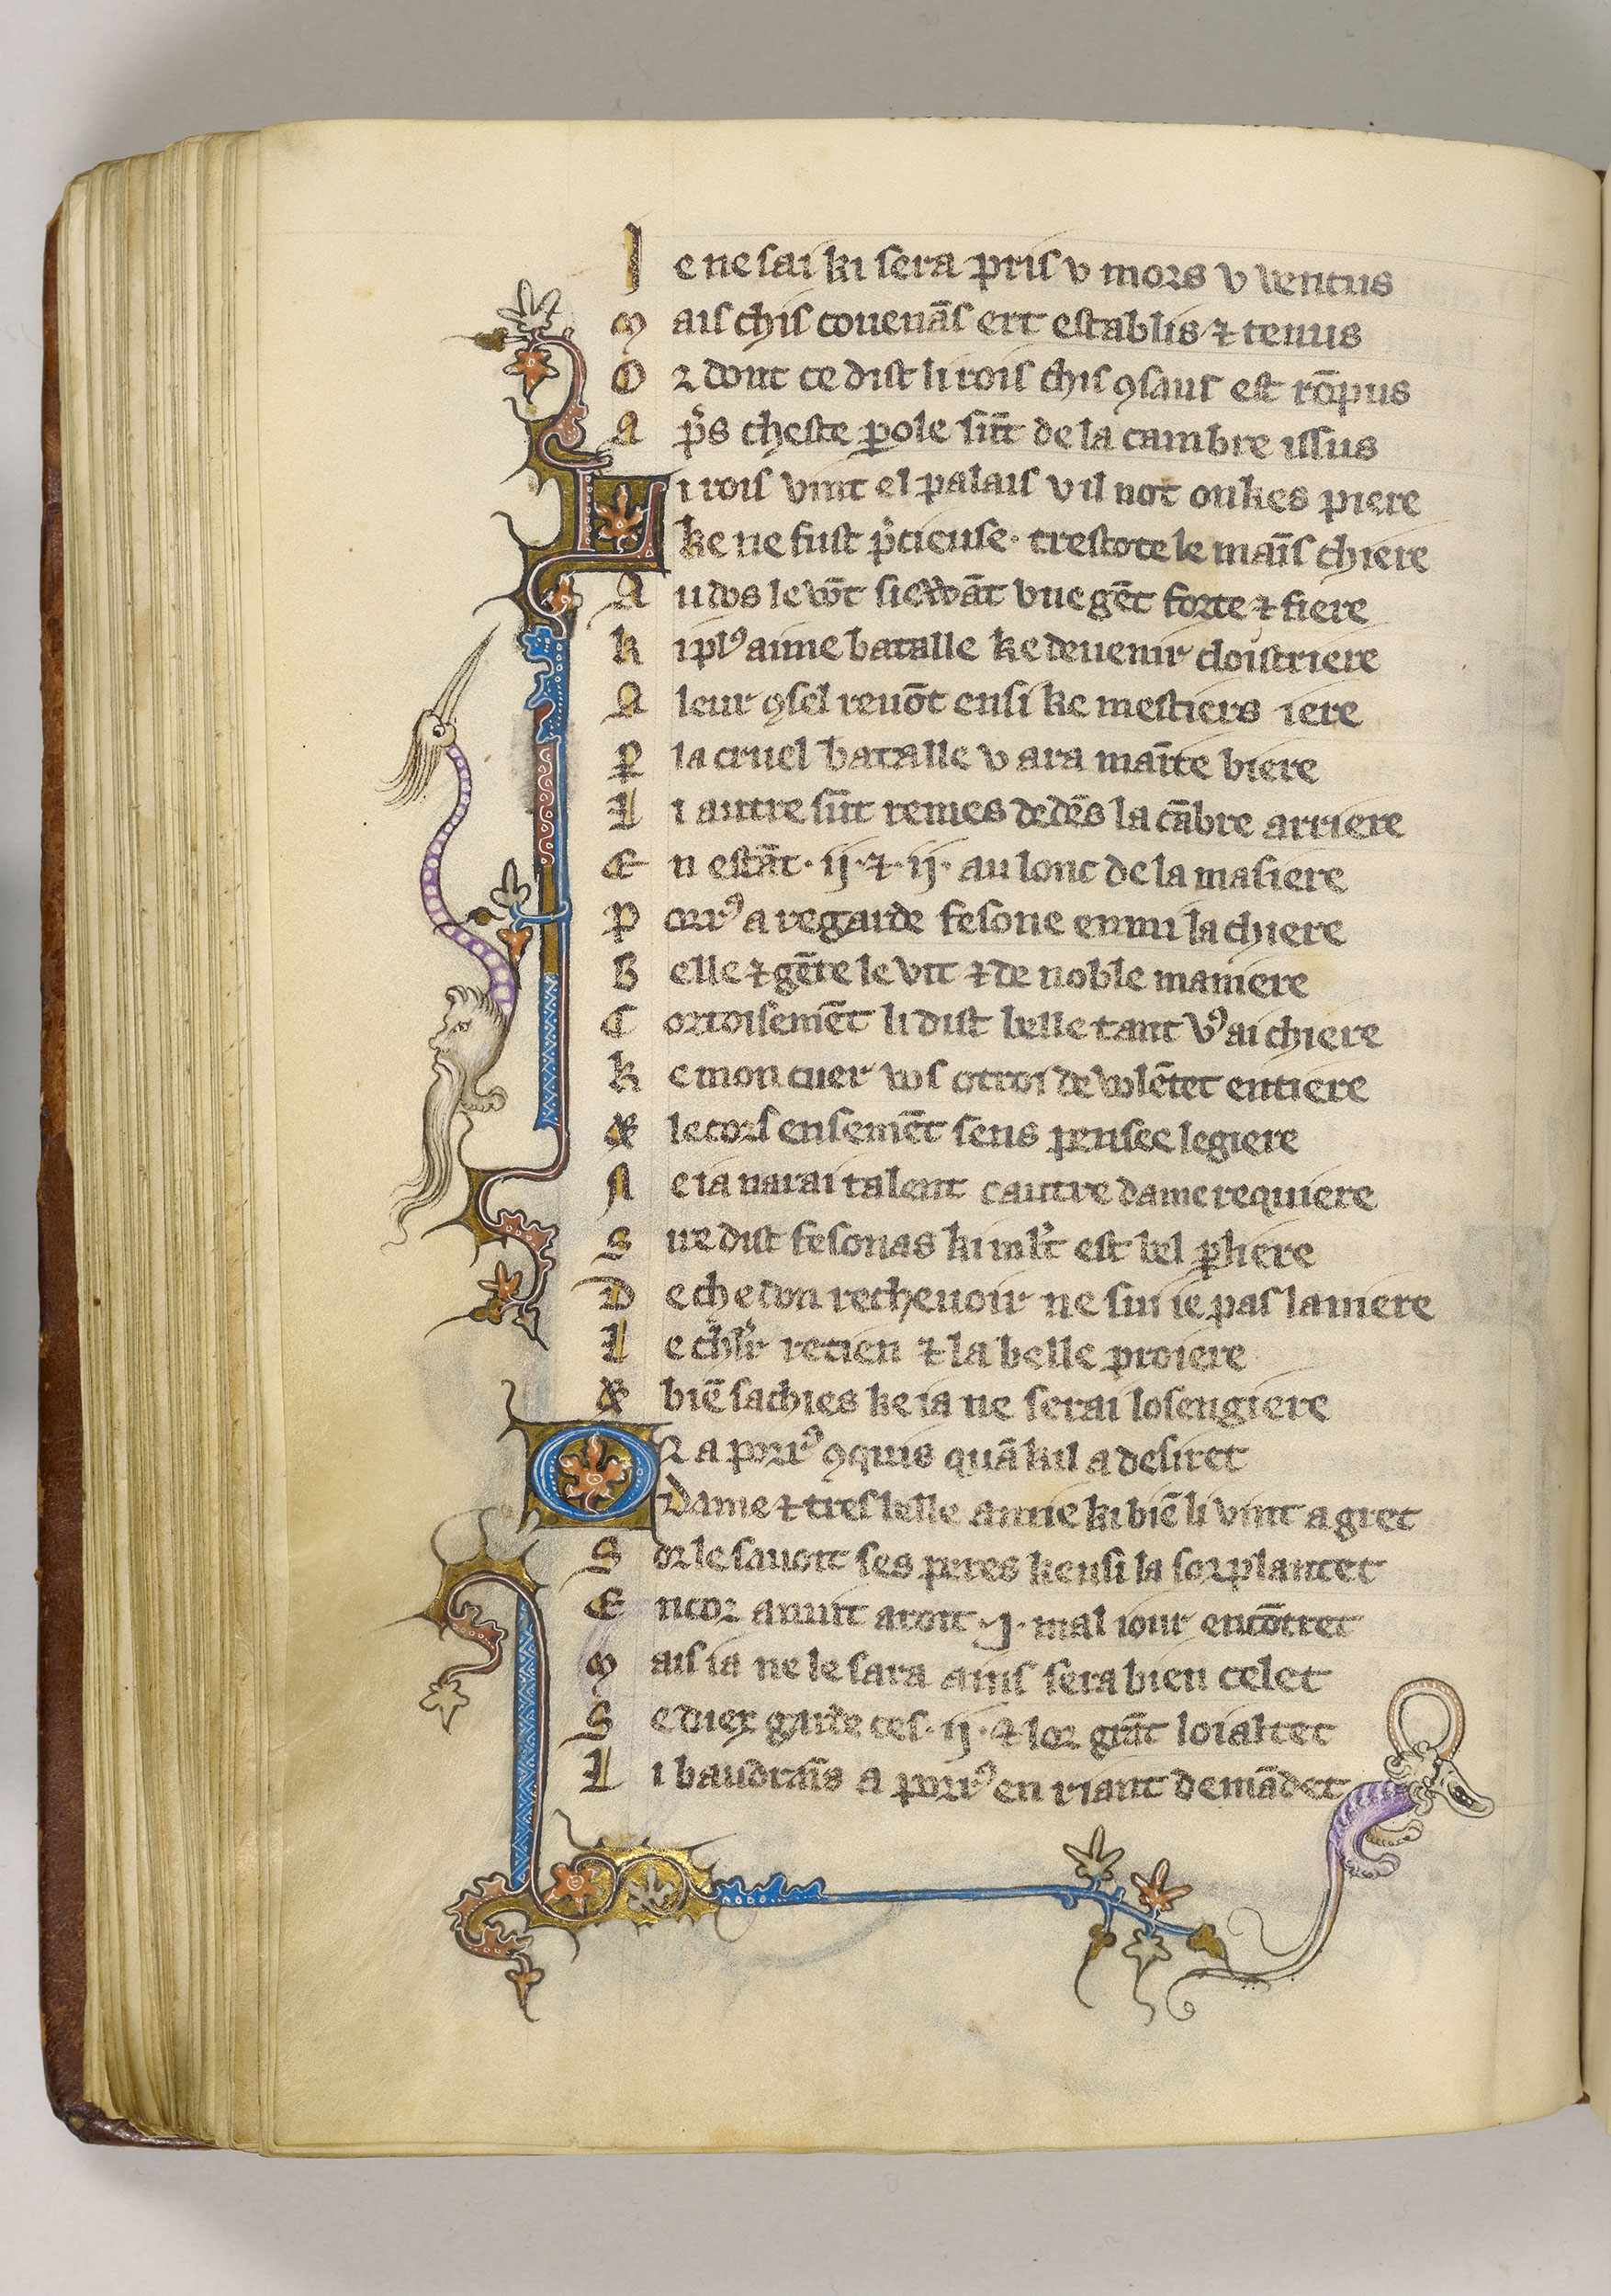 Je ne sai ki sera pris v mors v uentus
Mais chis couenās ert establis ⁊ tenus
Or dont ce dist li rois chis ꝯsaus est rōpus
Ap̾s cheste pole sūt de la cambre issus
Li rois vint el palais v il not onkes piere
ke ne fust p̾cieuse· trestote le mains chiere
Au dos le vōt siewāt vne gēt forte ⁊ fiere
ki plꝰ aime batalle ke deuenir cloistriere
A leur ꝯsel reuōt ensi ke mestiers iere
P la cruel batalle v ara mainte biere
Li autre sūt remes dedēs la cābre arriere
En estāt· ij·⁊·ij· au lonc de la masiere
Porrꝰ a regarde fesone enmi la chiere
Belle ⁊ gēte le vit ⁊ de noble maniere
Cortoisemēt li dist belle tant vꝰ ai chiere
Ke mon cuer vos otroi de volētet entiere
& le cors ensemēt sens pensee legiere
Ne ia narai talent cautre dame requiere
Sire dist fesonas ki mlt̾ est bel pliere
De che don recheuoir ne sui ie pas laniere
Le ch̾lr retien ⁊ la belle proiere
& biē sachies ke ia ne serai losengiere
OR a porrꝰ ꝯquis quākil a desiret
Dame ⁊ tres belle amie ki biē li vint a gret
Sor le sauoit ses peres kensi la sorplantet
Encor anuit aroit ·j· mal iour encōtret
Mais ia ne le sara ains sera bien celet
Se diex garde ces· ij· ⁊ lor grāt loialtet
Li baudrais a porrꝰ en riant demādet